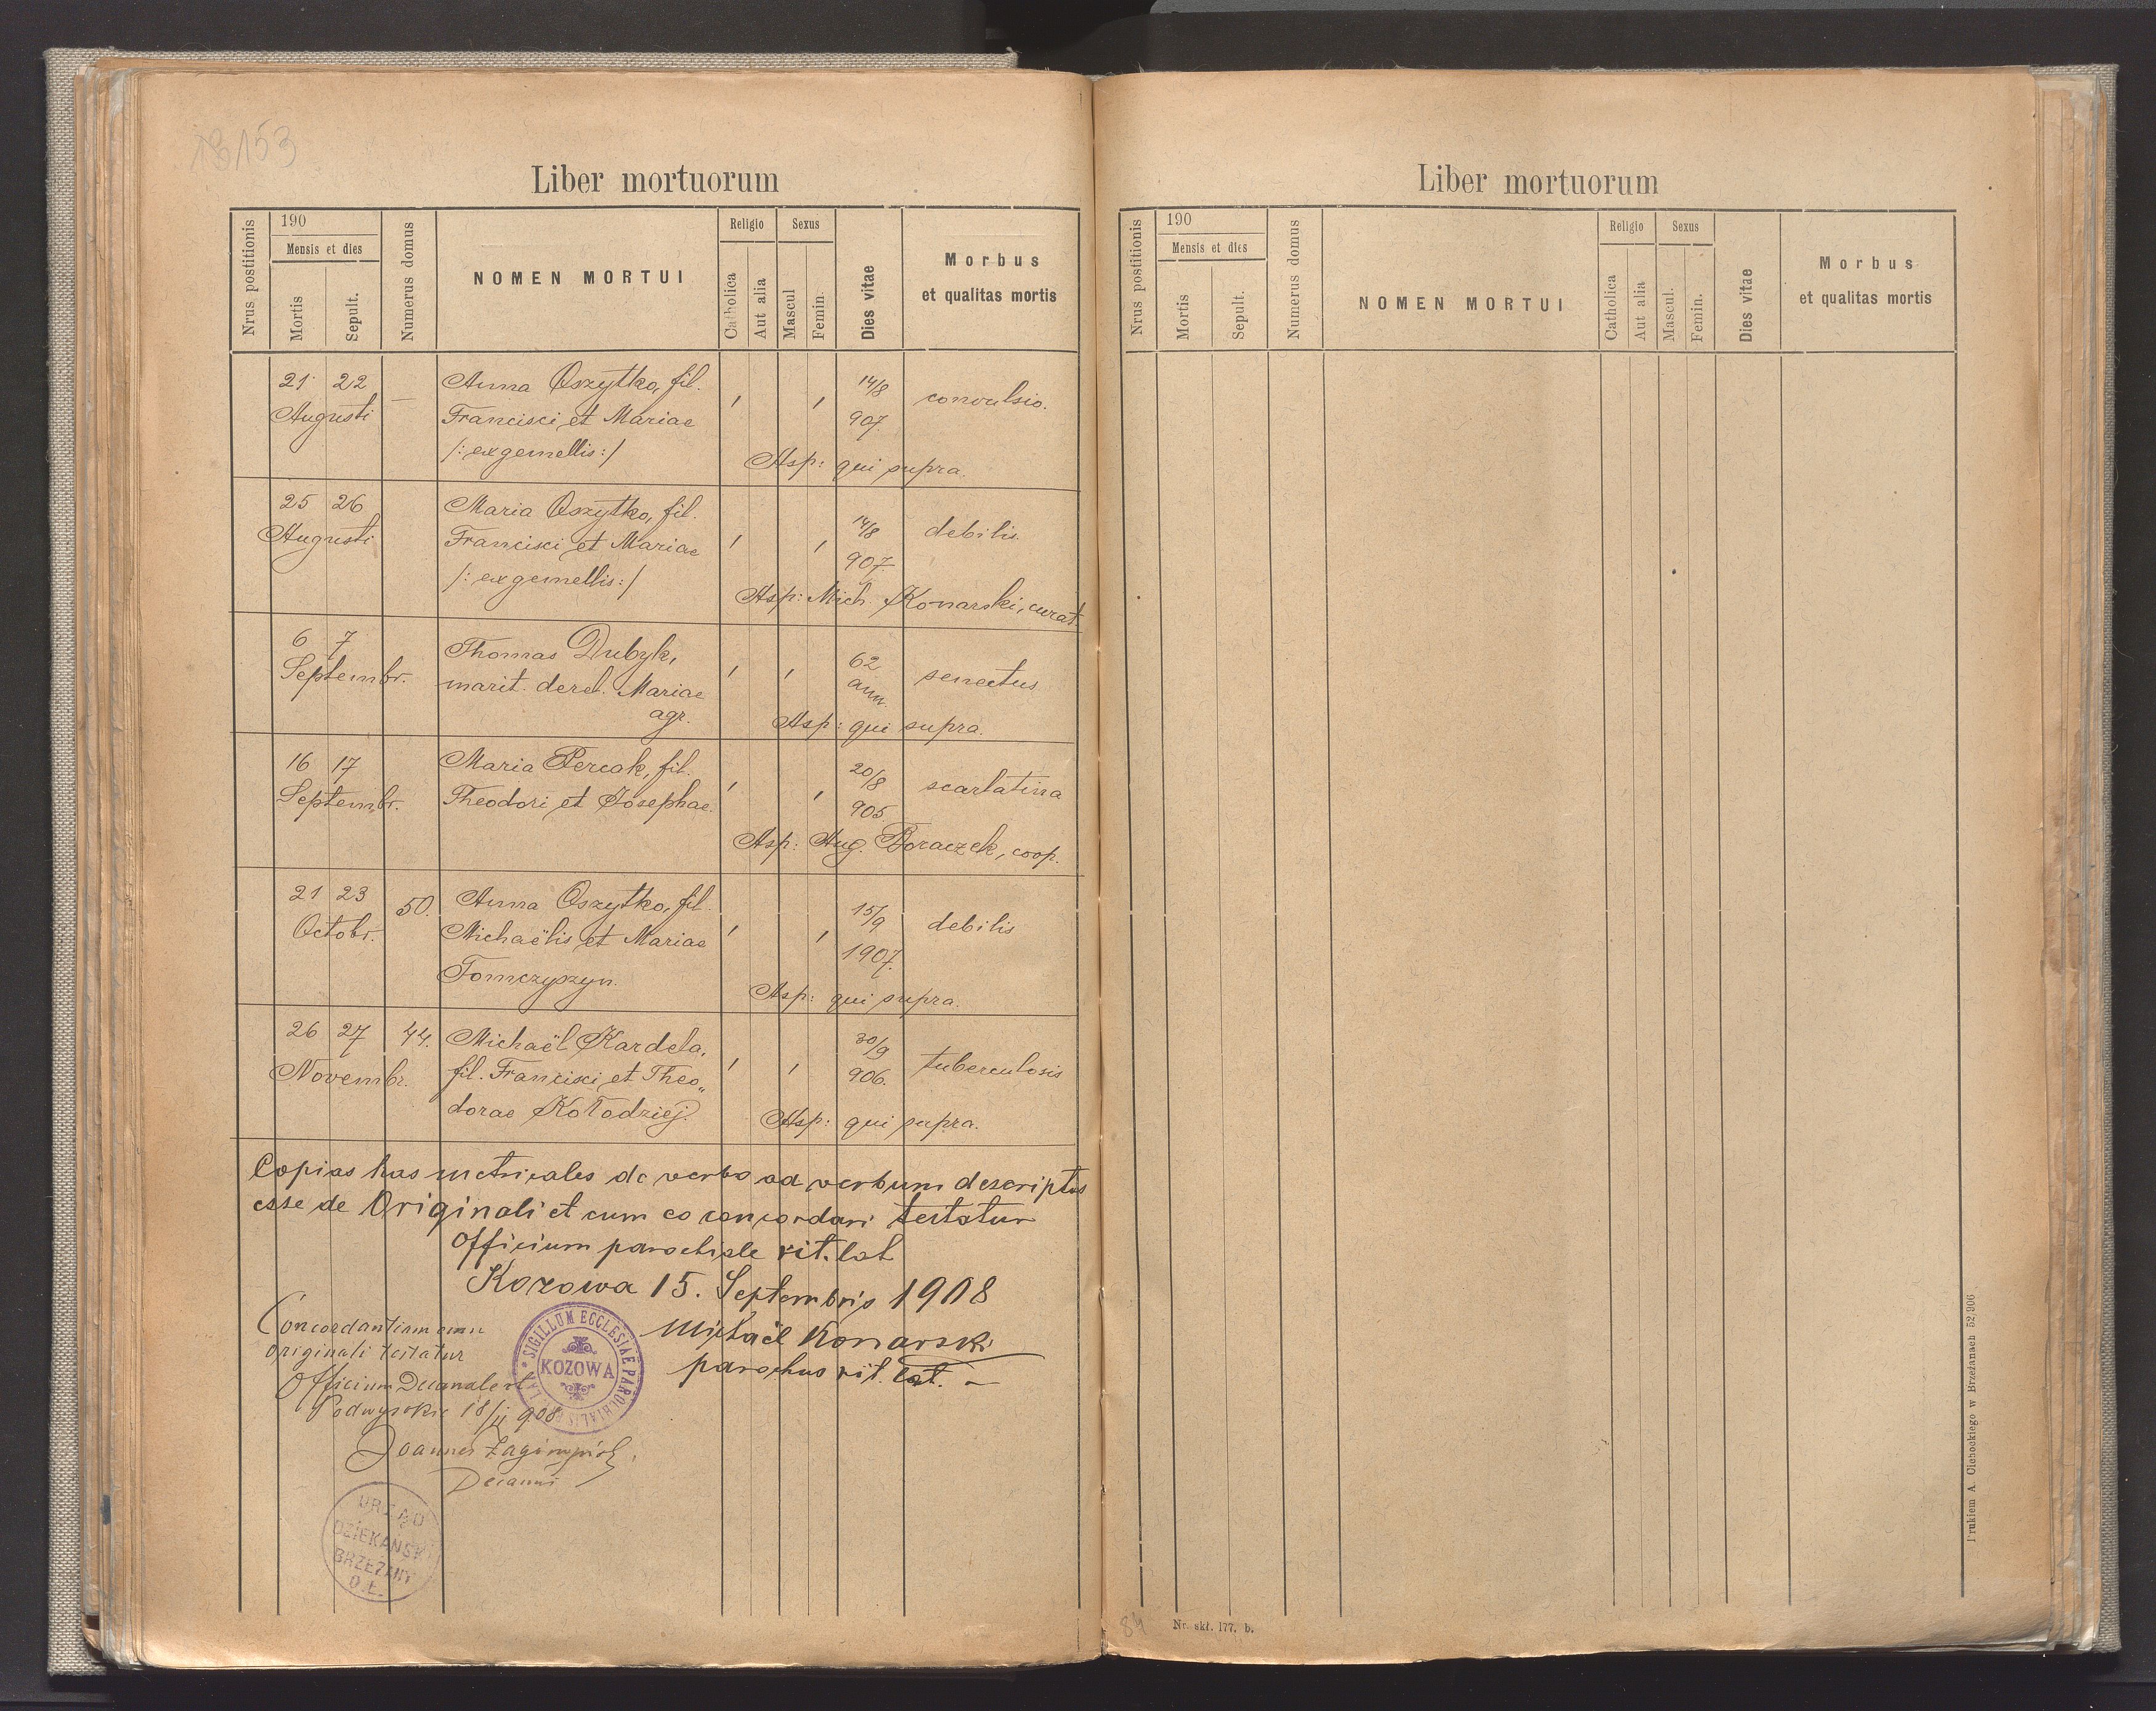 153
Liber mortuorum
Nrus postitionis
190
Mensis et dies
Mortis
Sepult.
Numerus domus
NOMEN MORTUI
Religio
Catholica
Aut alia
Sexus
Mascul
Femin.
Dies vitae
Morbus
et qualitas mortis
21 22
Augusti
—
Anna Oszytko, fil.
Francisci et Mariae
/: ex gemellis :/
14/8
907.
convulsio.
Asp: qui supra.
25 26
Augusti
Maria Oszytko, fil.
Francisci et Mariae
/: ex gemellis :/
14/8
907.
debilis
Asp: Mich. Konarski, curat.
6 7
Septembr.
Thomas Dubyk,
marit. derel. Mariae
agr.
62
ann.
senectus
Asp: qui supra.
16 17
Septembr.
Maria Percak, fil.
Theodori et Josephae.
20/8
905.
scarlatina
Asp: Aug. Boraczek, coop.
21 23
Octobr.
50.
Anna Oszytko, fil.
Michaëlis et Mariae
Tomczyszyn.
15/9
1907.
debilis
Asp: qui supra.
26 27
Novembr.
44.
Michaël Kardela,
fil. Francisci et Theo„
dorae Kołodziej.
30/9
906.
tuberculosis
Asp: qui supra.
Copias has metricales de verbo ad verbum descriptas
esse de Originali et cum eo concordari testatur
Officium parochiale rit. lat
Kozowa 15. Septembris 1908
Michaël Konarski
parochus rit. lat. –
SIGILLUM ECCLESIAE PAROCHIALIS LAT.
KOZOWA
Concordantiam cum
originali testatur
Officium Decanale
Podwysokie 908
Joannes
Decanus
URZĄD
DZIEKAŃSKI
BRZEŻANY
O.Ł.
Liber mortuorum
Nrus postitionis
190
Mensis et dies
Mortis
Sepult.
Numerus domus
NOMEN MORTUI
Religio
Catholica
Aut alia
Sexus
Mascul.
Femin.
Dies vitae
Morbus
et qualitas mortis
84
Nr. skł. 177. b.
Drukiem A. Cichockiego w Brzeżanach 52,906